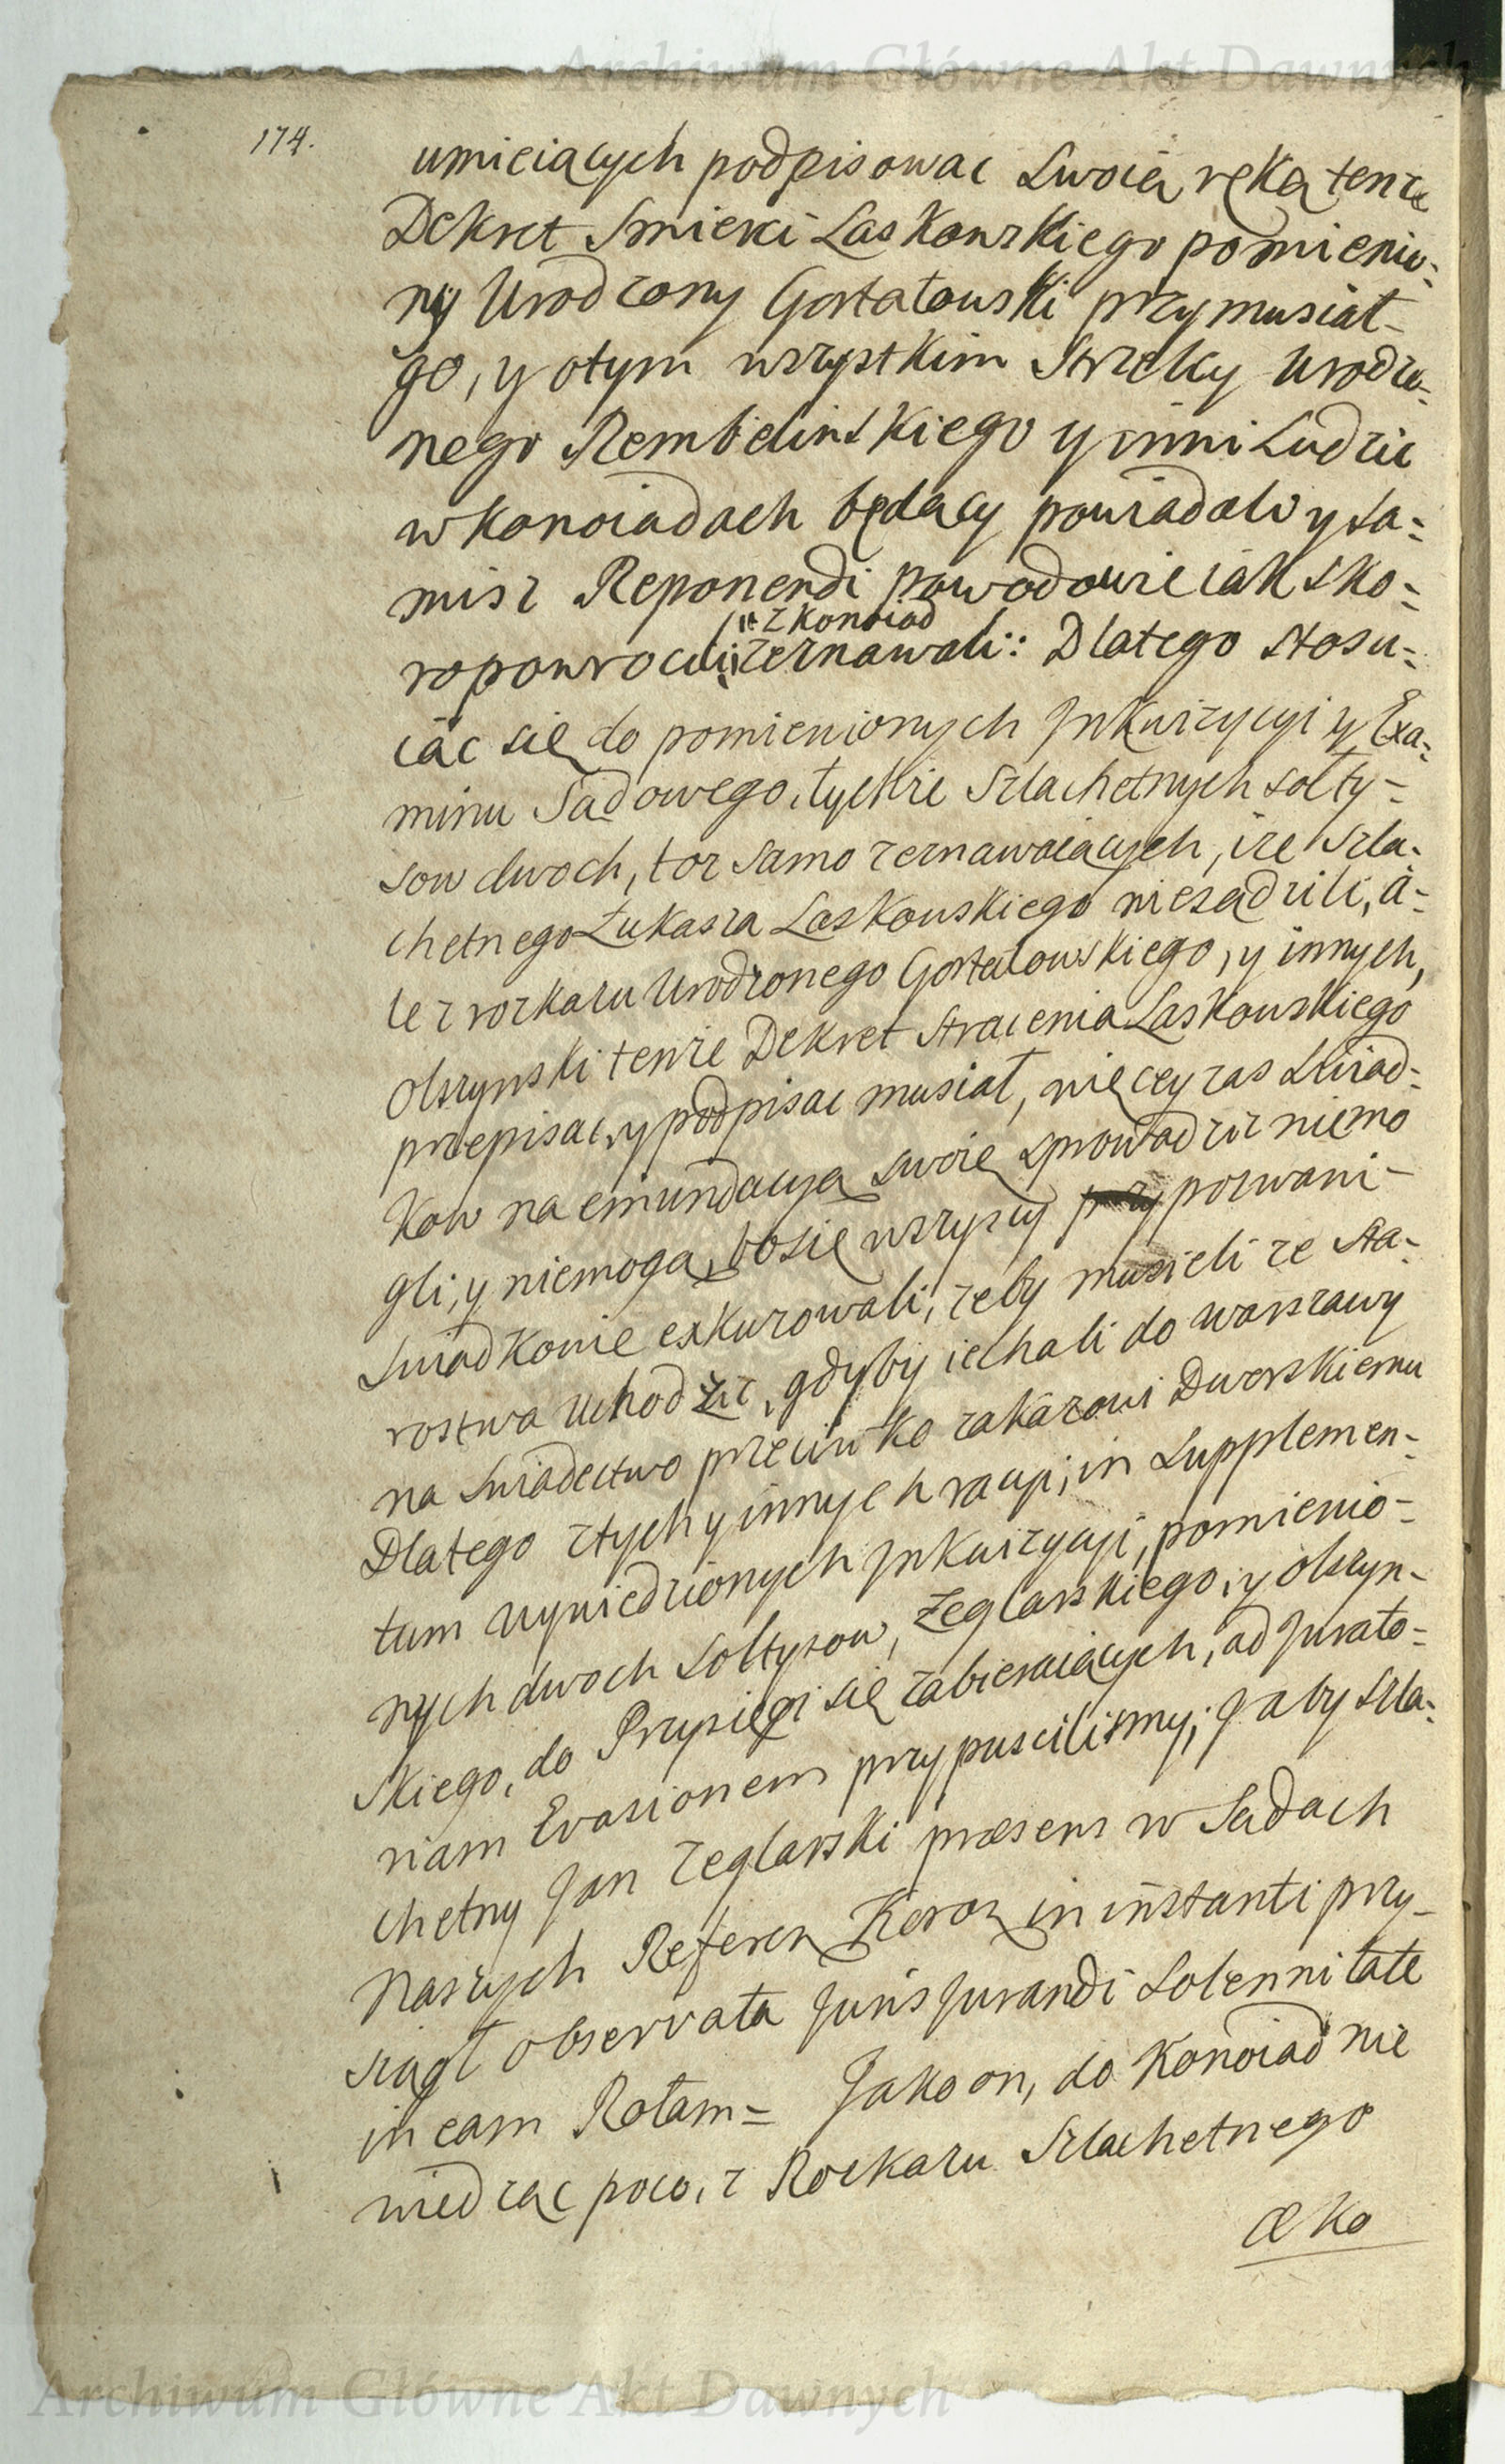 Archiwum Główne Akt Dawnych
174.
umieiących podpisowac Swoią ręką tenze
Dekret Smierci Laskowskiego pomienio=
ny Urodzony Gostałowski przymusiał
go, y otym wszystkim Strzelcy Urodzo=
nego Rembelinskiego y inni Ludzie
w Konoiadach będący powiadali y sa=
misz Reponendi powodowie iak sko=
z Konoiad
ropowrocili zeznawali: Dlatego stosu=
iąc się do pomienionych Inkwizycyi y Exa=
minu Sądowego, tychże Szlachetnych Sołty=
sow dwoch, toz samo zeznawaiących, ize Szla=
chetnego Łukasza Laskowskiego niesądzili, á=
le z rozkazu Urodzonego Gostałowskiego, y innych,
Olszynski tenze Dekret Stracenia Laskowskiego
przepisac, y podpisac musiał, więcey zas Swiad=
kow na emundacyą swoię sprowadzic niemo
gli, y niemogą, bo się wszyscy przypozwani
Swiadkowie exkuzowali, zeby musieli ze Sta=
rostwa Uchodzic, gdyby iechali do Warszawy
na Swiadectwo przeciwko zakazowi Dworskiemu
Dlatego ztych y innych racyi, in Supplemen=
tum wywiedzionych Inkwizycyi, pomienio=
nych dwoch Sołtysow, Zeglarskiego, y Olszyn=
skiego, do Przysięgi się zabieraiących, ad Jurato=
riam Evasionem przypuscilismy; Jakoby Szla=
chetny Jan Zeglarski præsens w Sądach
Naszych Referen Koron in instanti przy=
siągł observata Juris Jurandi Solennitate
in eam Rotam = Jako on, do Konoiad nie
wiedząc poco, z Rozkazu Szlachetnego
Archiwum Główne Akt Dawnych